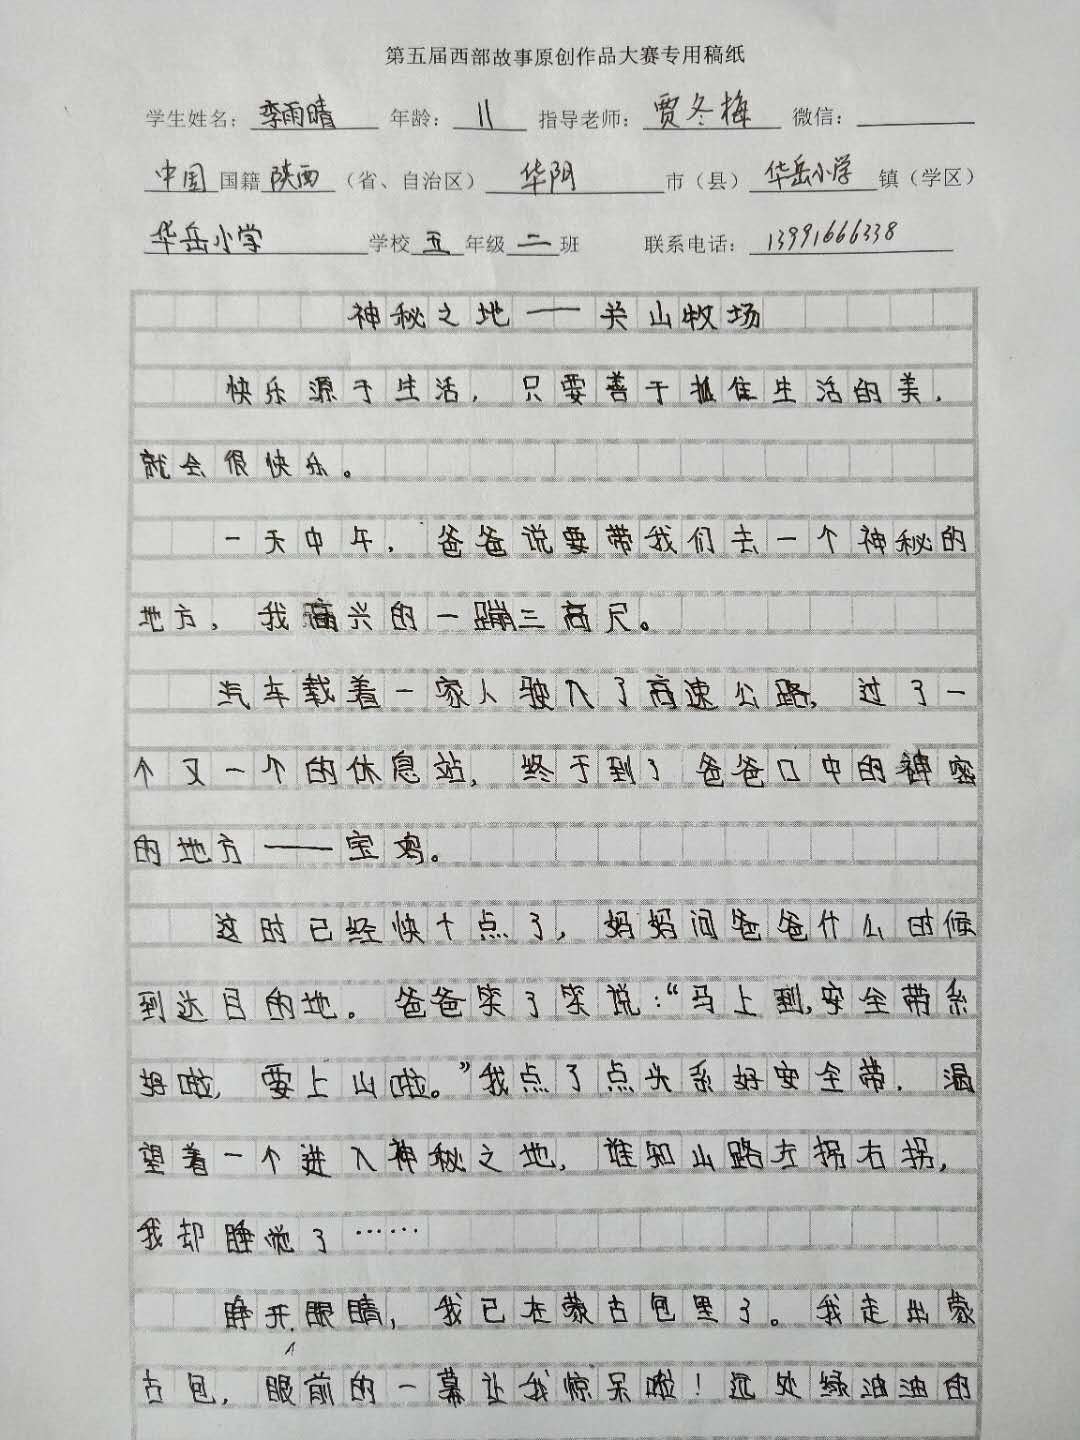 第五届西部故事原创作品大赛专用稿纸
学生姓名：李雨晴 年龄：11 指导老师：贾冬梅 微信：
中国国籍陕西（省、自治区）华阴市（县）华岳小学镇（学区）
华岳小学学校五年级二班 联系电话：13991666338
神秘之地——关山牧场
快乐源于生活，只要善于抓住生活的美，
就会很快乐。
一天中午，爸爸说要带我们去一个神秘的
地方，我高兴的一蹦三高尺。
汽车载着一家人驶入了高速公路，过了一
个又一个的休息站，终于到了爸爸口中的神密
的地方——宝鸡。
这时已经快十点了，妈妈问爸爸什么时候
到达目的地。爸爸笑了笑说：“马上到，安全带系
好啦，要上山啦。”我点了点头系好安全带，渴
望着一个进入神秘之地，谁知山路左拐右拐，
我却睡觉了……
睁开眼睛，我已在蒙古包里了。我走出蒙
古包，眼前的一幕让我惊呆啦！远处绿油油的